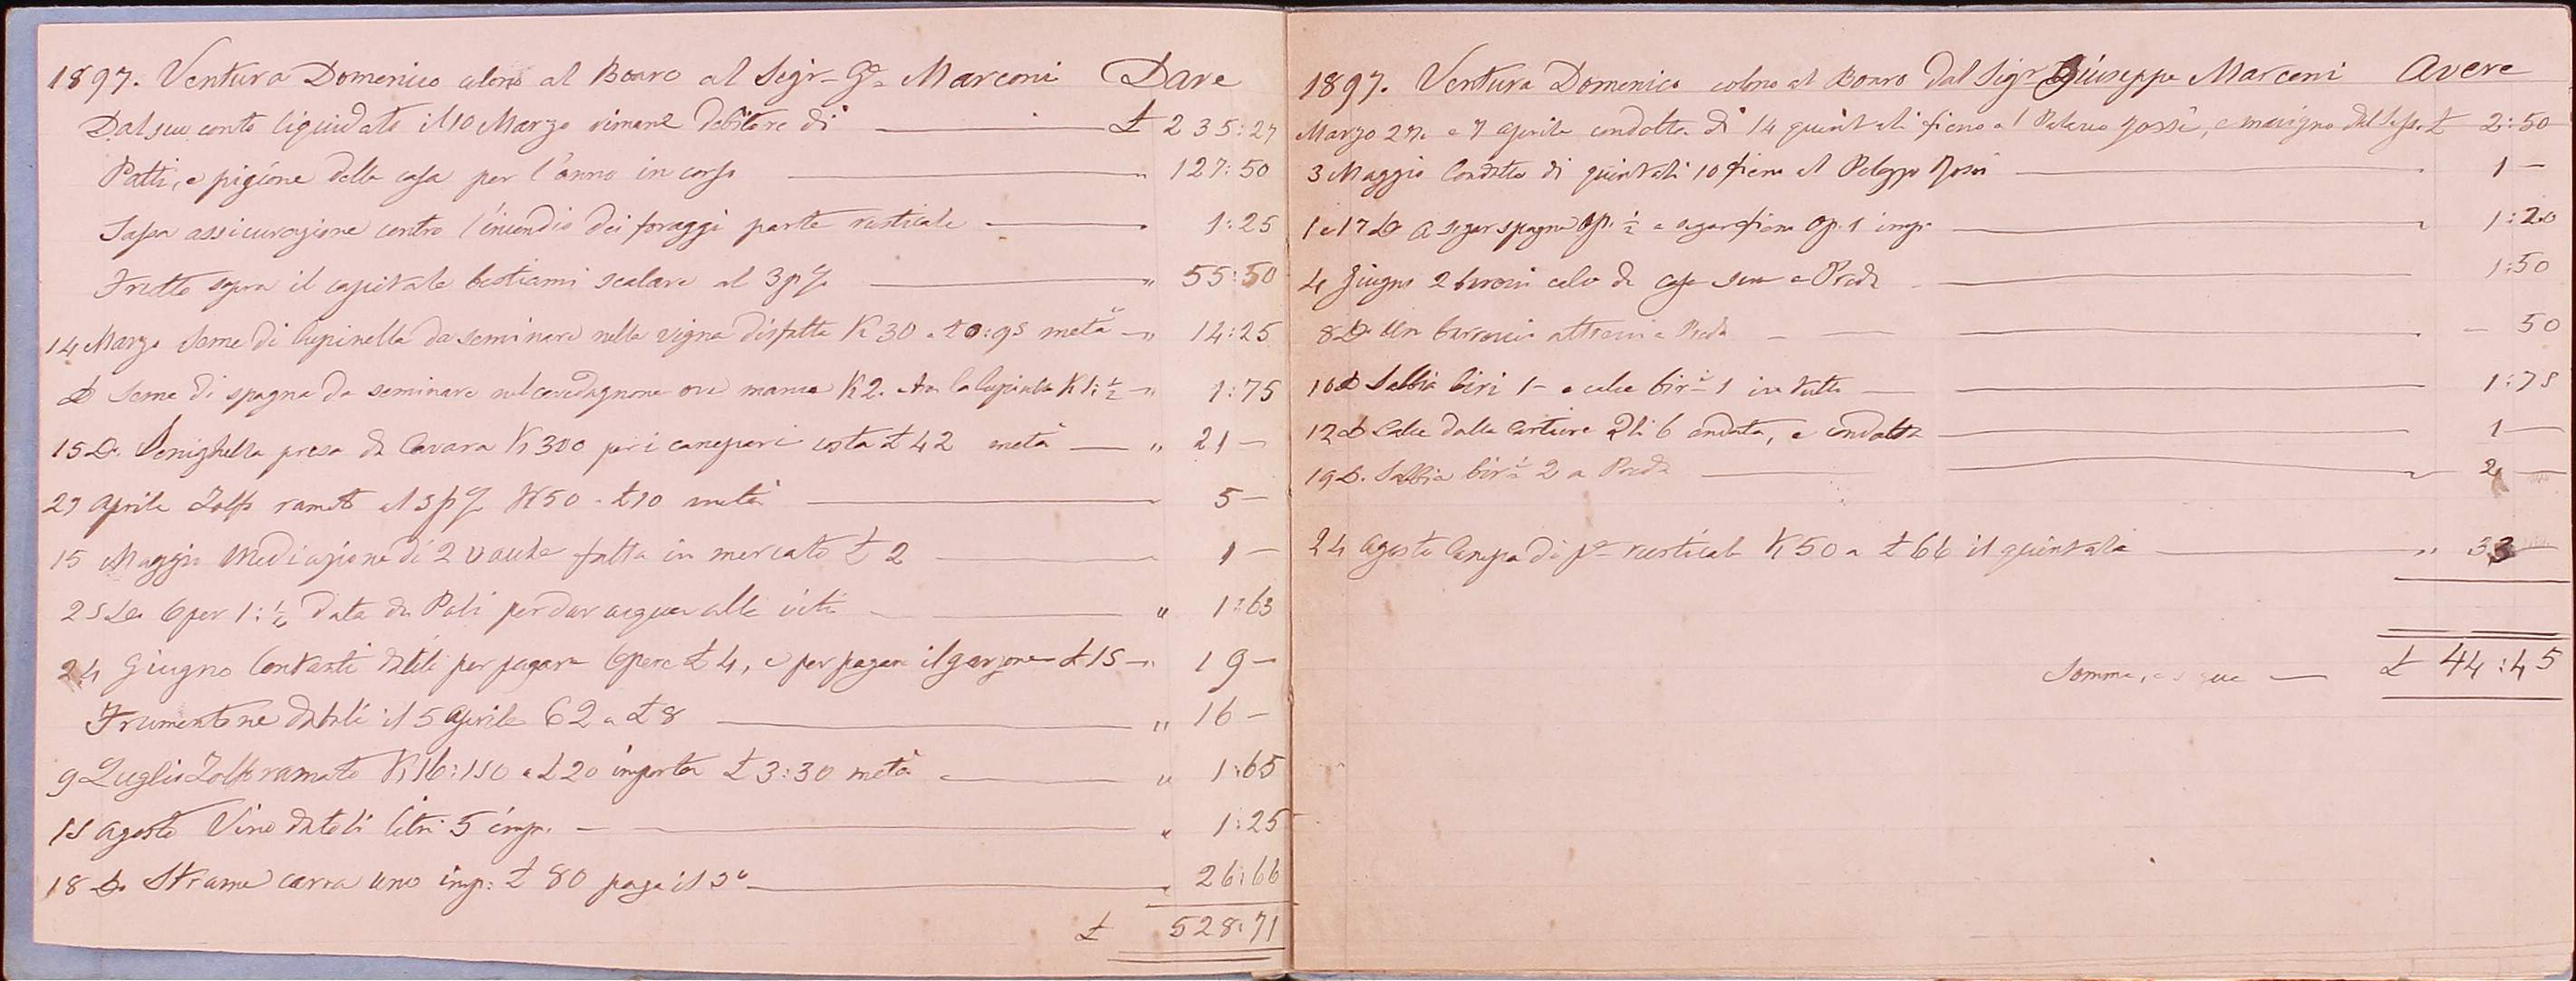 1897. Ventura Domenico colono al Boaro al Sigr. Ge. Marconi Dare
Dal suo conto liquidato il 10 Marzo rimane debitore di £ 235:27
Patti, e pigione della casa per l'anno in corso " 127:50
Tassa assicurazione contro l'incendio dei foraggi parte rusticale 1:25
Frutto sopra il capitale bestiami scalare al 3 p% " 55:50
14 Marzo Seme di lupinella da seminare nella vigna disfatta K 30 a £ 0:95 metà " 14:25
Do Seme di spagna da seminare nel cavedagnone ove manca K 2. la lupinella K 1:½ " 1:75
15 Do. presa da Cavara K 300 per i canepari costa £ 42 metà " 21 —
27 Aprile Zolfo ramato al 3 p% K 50 a £ 10 metà 5 —
15 Maggio Mediazione di 2 vacche fatta in mercato £ 2 1 —
25 Do Oper 1: data da Poli per dar acqua alle viti " 1:63
24 Giugno Contanti datili per pagare Opere £ 4, e per pagare il garzone £ 15 " 19 —
Frumentone datoli il 5 Aprile C 2 a £ 8 " 16 —
9 Luglio Zolfo ramato K 16:150 a £ 20 importa £ 3:30 metà " 1:65
15 Agosto Vino datoli litri 5 imp. " 1:25
18 Do Strame carra uno imp: £ 80 paga il 3o 26:66
£ 528:71
1897. Ventura Domenico colono al Boaro dal Sigr Giuseppe Marconi Avere
Marzo 27. e 7 Aprile condotta di 14 quintali fieno al Palazzo £ 2:50
3 Maggio Condotta di quintali 10 fieno al 1 —
1 e 17 Do A segar spagna Op. ½ e segar fieno Op. 1 imp. 1:20
4 Giugno 2 birocci calce da casa sua a Preda 1:50
8 Do Un biroccio a Preda — 50
10 Do Sabbia biri 1 — e calce biri 1 in tutto 1:75
12 Do Calce dalla Cartiera Qli 6 andata, e condotta 1 —
19 Do. Sabbia biri 2 a Preda 2 —
24 Agosto Canepa di pe rusticale K 50 a £ 66 il quintale " 33
Somma, e segue £ 44:45